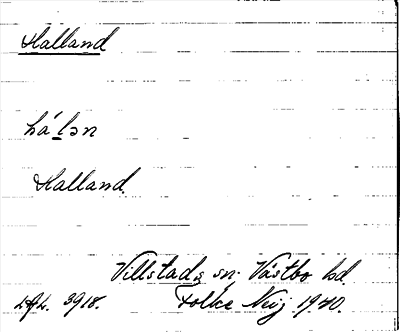 Halland
há'lən
Halland
Villstads sn. Västbo hd.
3918. Folke 1940.